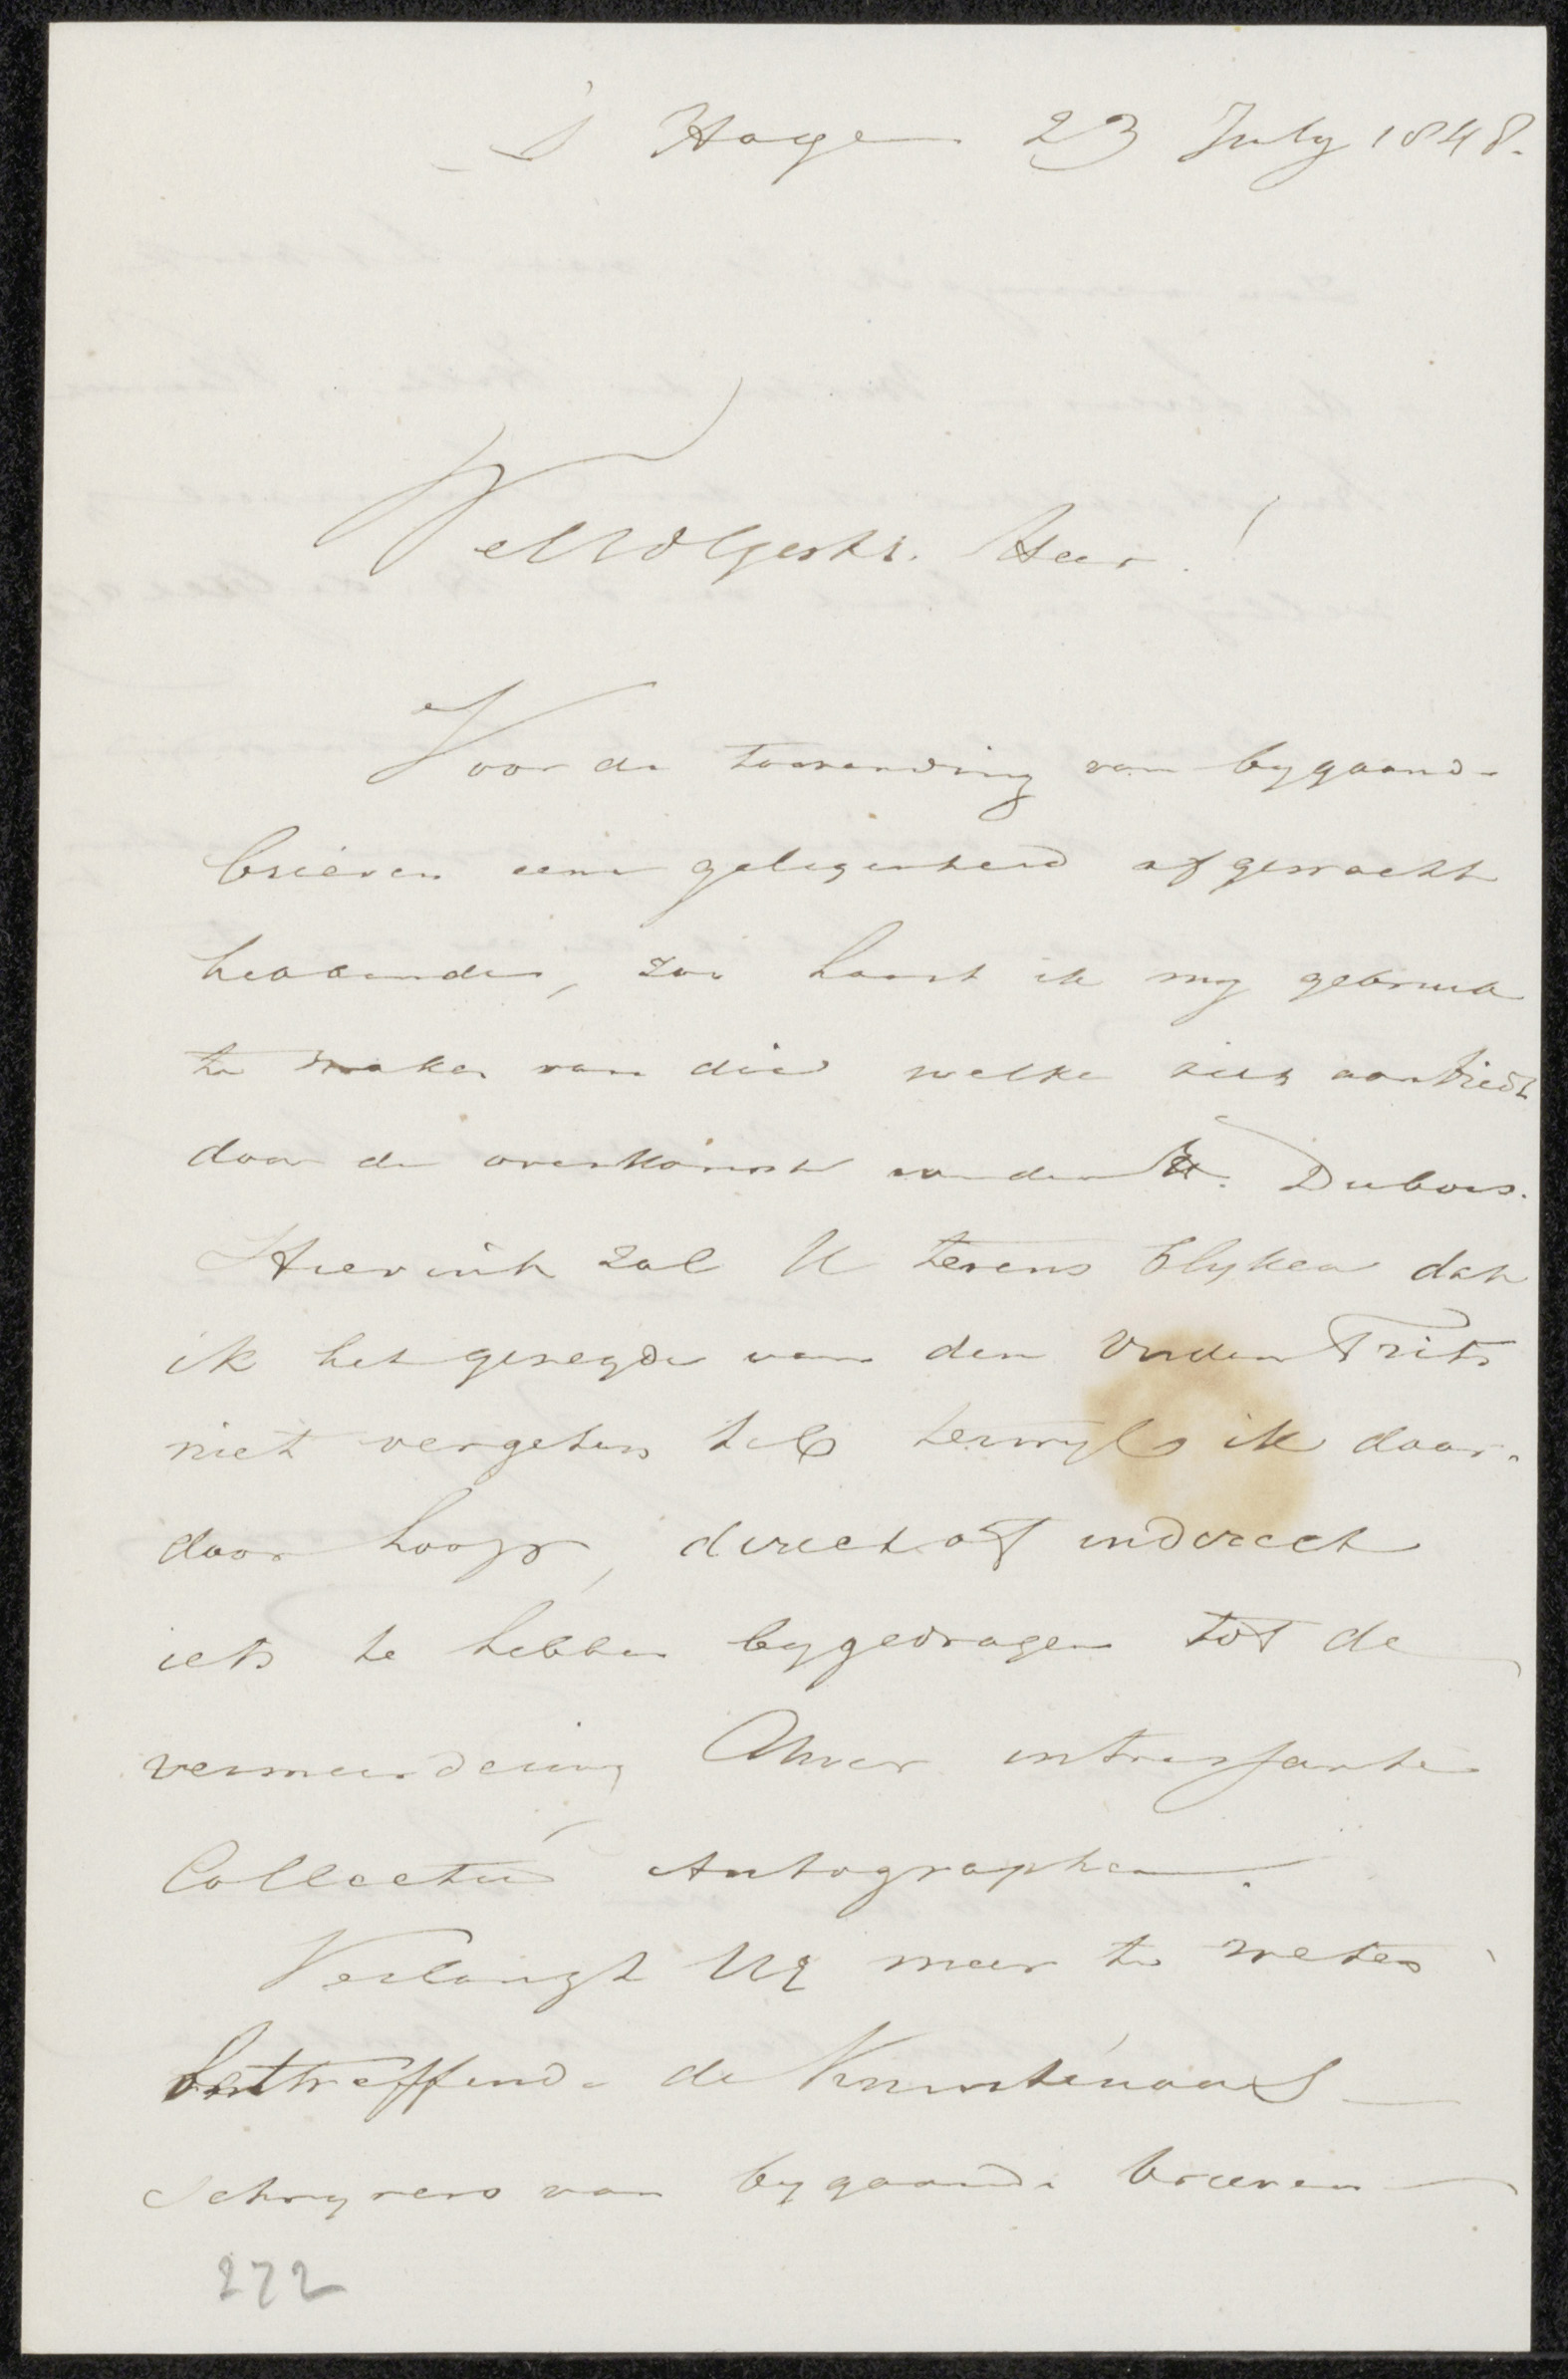 s Hage 23 July 1848.
WelEdlGestr. Heer!
Voor de toezending van bygaande
brieven eene gelegenheid afgewacht
hebbende, zoo haast ik my gebruik
te maken van die welke zich aanbiedt
door de overkomst van den H. Dubois.
Hieruit zal U tevens blyken dat
ik het gezegde van den Ouden Frits
niet vergeten heb terwyl ik daar-
door hoop, direct of indirect
iets te hebben bygedragen tot de
vermeerdering Uwer intressante
Collectie Autographen.
Verlangt UE meer te weten
betreffende de Kunstenaars
schryvers van bygaande brieven
272